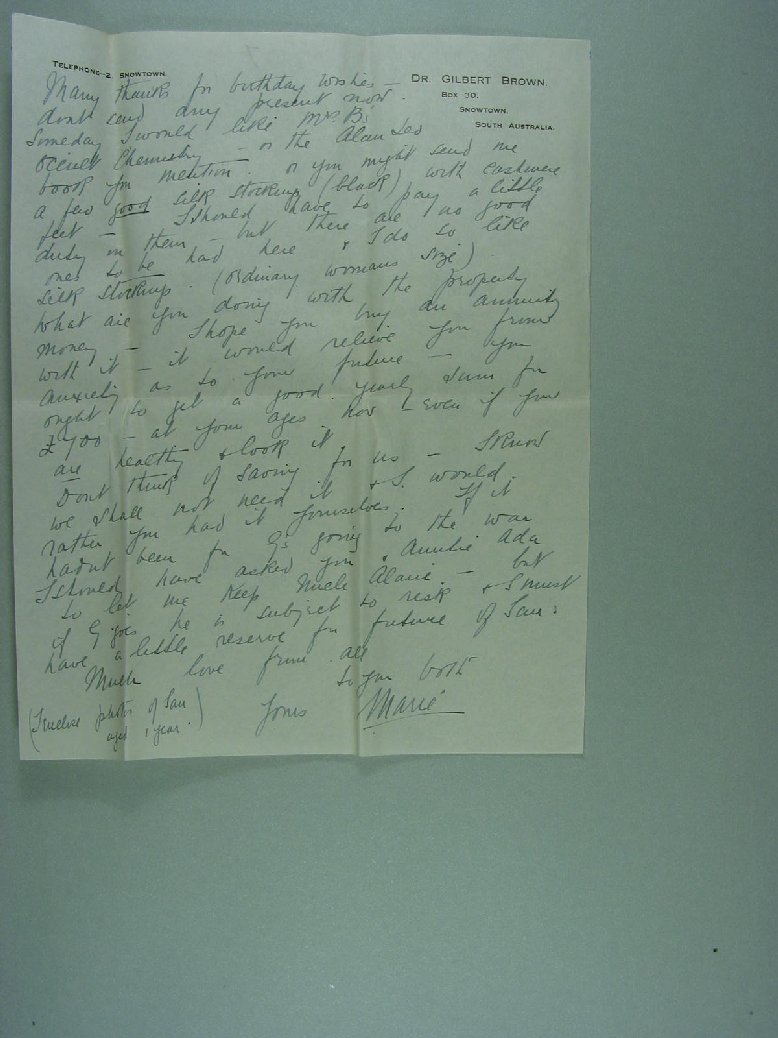 TELEPHONE-2, SNOWTOWN.
DR. GILBERT BROWN.
BOX 30.
SNOWTOWN.
SOUTH AUSTRALIA.
Many thanks for birthday wishes –
dont send any present now.
Someday I would like Mrs. B's
Occult Chemistry – or the Alan Leo
book you mention. or you might send me
a few good silk stockings (black) with cashmere
feet – I should have to pay a little
duty on them – but there are no good
ones to be had here & I do so like
silk stockings. (ordinary womans size)
What are you doing with the property
money – I hope you buy an annuity
with it – it would relieve you from
anxiety as to your future – you
ought to get a good yearly sum for
£700 – at your ages now – even if you
are healthy & look it.
Dont think of saving for us – I know
we shall not need it & I would
rather you had it yourselves. If it
hadnt been for G's going to the war
I should have asked you & Auntie Ada
to let me keep Uncle Alavie – but
if G goes he is subject to risk & I must
have a little reserve for future of Ian:
Much love from all
to you both
Yours Marie
(I enclose photos of Ian
aged 1 year.)